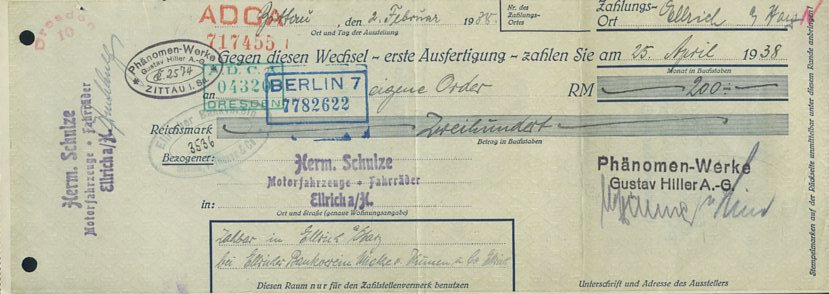 Dresden
10
ADCA
717455
Zittau, den 2. Februar 1938
Ort und Tag der Ausstellung
Nr. des
Zahlungs-
Ortes
Zahlungs-
Ort
Ellrich
Gegen diesen Wechsel - erste Ausfertigung - zahlen Sie am 25. April 1938
Monat in Buchstaben
Phänomen-Werke
Gustav Hiller A.-G.
ZITTAU i. Sa.
2574
A.D.C.A.
04320
DRESDEN
BERLIN 7
7782622
an eigene Order RM 200.-
Reichsmark Zweihundert
Betrag in Buchstaben
3536
Bezogener:
Herm. Schulze
Motorfahrzeuge * Fahrräder
Ellrich a/H.
in:
Ort und Straße (genaue Wohnungsangabe)
Phänomen-Werke
Gustav Hiller A.-G.
Zahlbar in Ellrich a/Harz
bei Ellricher Bankverein
Diesen Raum nur für den Zahlstellenvermerk benutzen
Unterschrift und Adresse des Ausstellers
Herm. Schulze
Motorfahrzeuge * Fahrräder
Ellrich a/H.
Stempelmarken auf der Rückseite unmittelbar unter diesem Rande anbringen!